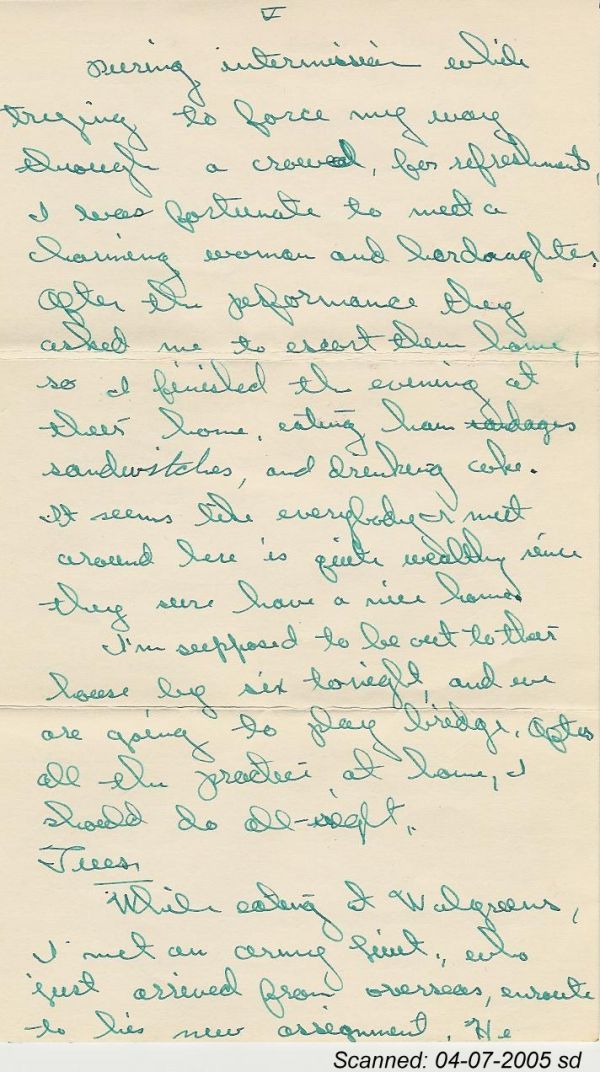 V
During intermission while
trying to force my way
through a crowd, for refreshments,
I was fortunate to meet a
charming woman and her daughter.
After the performance they
asked me to escort them home,
so I finished the evening at
their home, eating ham
sandwitches, and drinking coke.
It seems like everybody I meet
around here is quite wealthy since
they sure have a nice home.
I'm supposed to be out to their
house by six tonight, and we
are going to play bridge. After
all the practice at home, I
should do all-right.
Tues.
While eating at Walgreens,
I met an army lieut., who
just arrived from overseas, enroute
to his new assignment. He
Scanned: 04-07-2005 sd